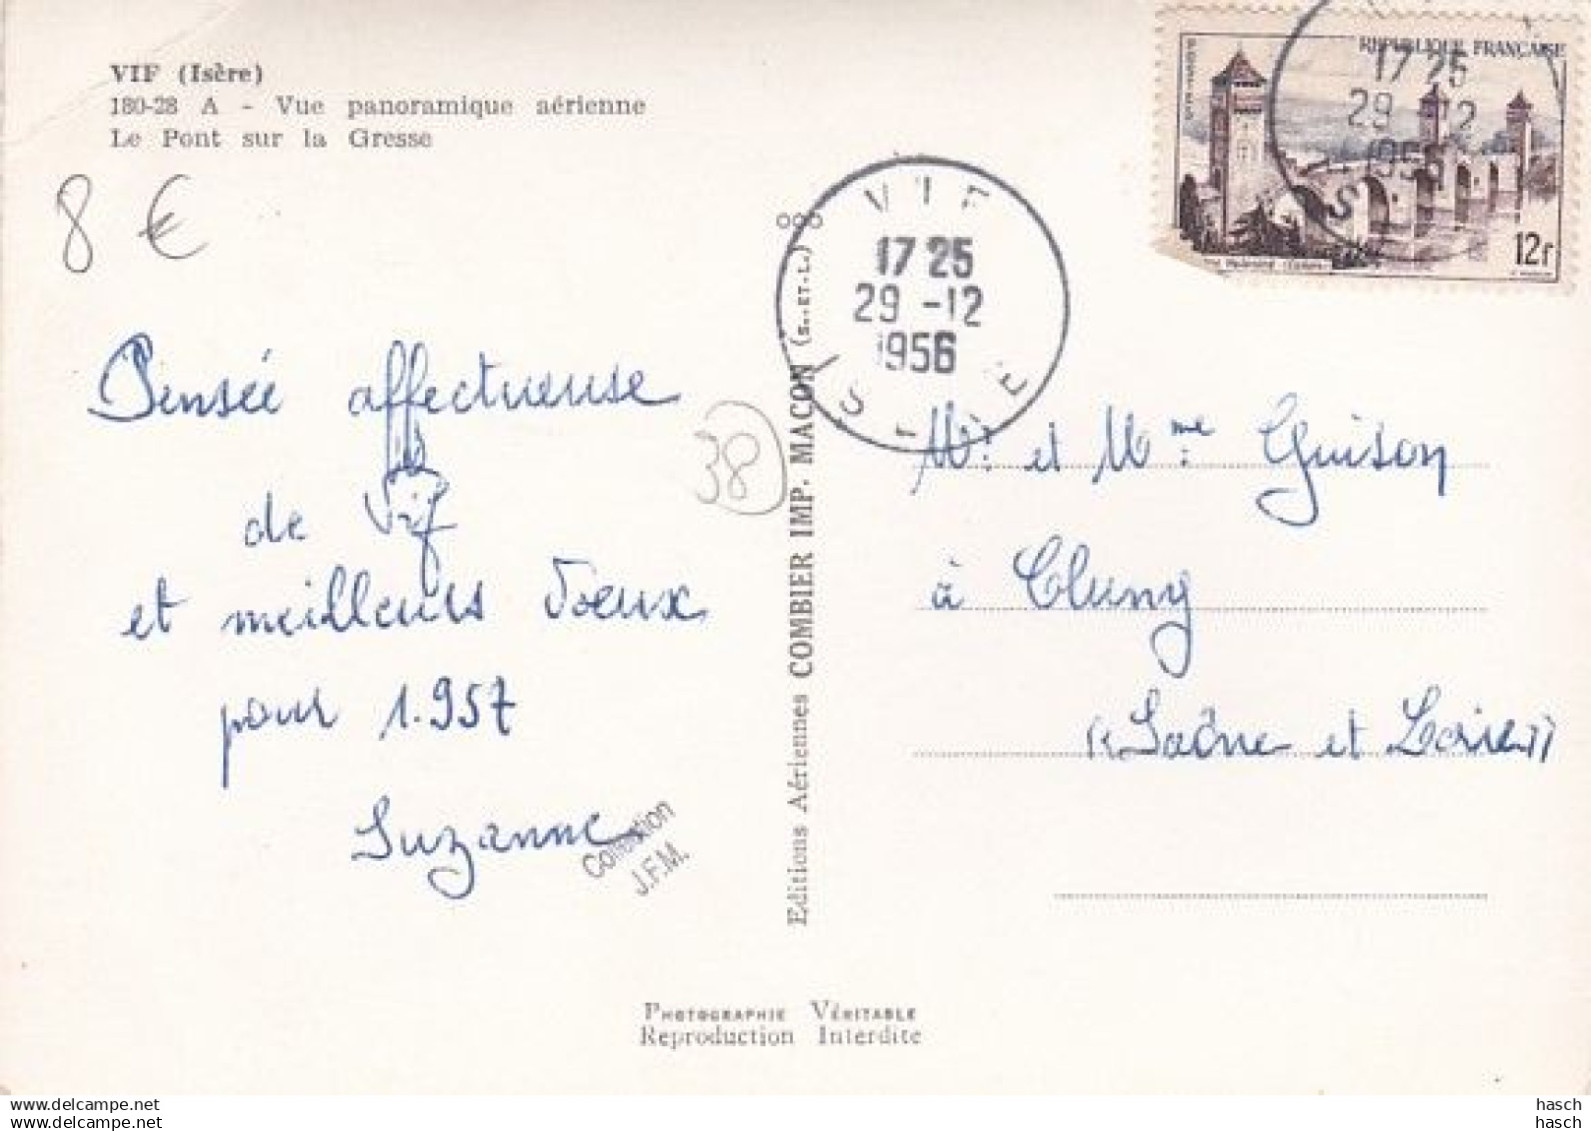 VIF (Isère)
180-28 A - Vue panoramique aérienne
Le Pont sur la Gresse
8 €
Pensée affectueuse
de Vif
et meilleurs Voeux
pour 1.957
Suzanne
Collection
J.F.M.
38
Editions Aériennes COMBIER IMP. MACON (S.-ET-L.)
VIF
17 25
29 -12
1956
ISERE
REPUBLIQUE FRANÇAISE
17 25
29 -12
1956
12f
Mr et Mme Guison
à Cluny
(Saône et Loire)
PHOTOGRAPHIE VÉRITABLE
Reproduction Interdite
www.delcampe.net
www.delcampe.net
hasch
hasch